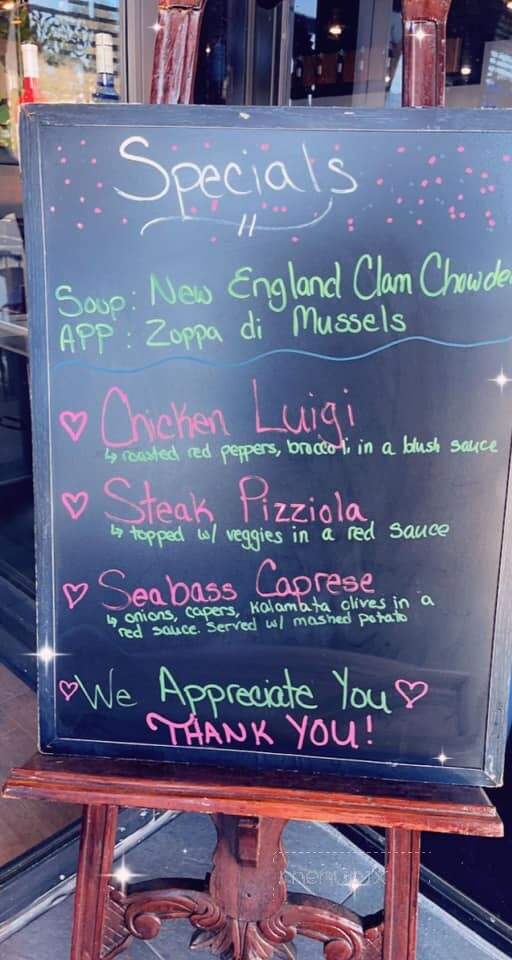 Specials
Soup: New England Clam Chowde
APP: Zoppa di Mussels
Chicken Luigi
↳ roasted red peppers, broccoli, in a blush sauce
Steak Pizziola
↳ topped w/ veggies in a red sauce
Seabass Caprese
↳ onions, capers, Kalamata olives in a
red sauce. Served w/ mashed potato
We Appreciate You
THANK YOU!
menupix